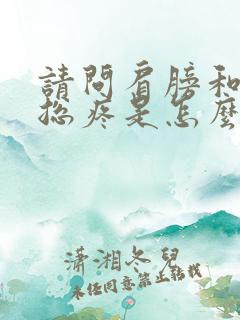 請問肩膀和
總疼是怎麼
瀟湘冬兒
未经同意禁止转载